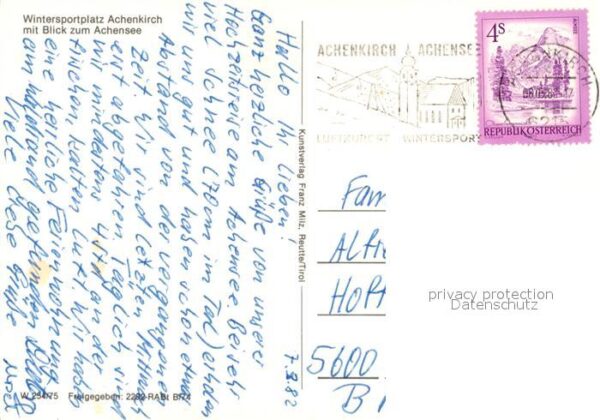 Wintersportplatz Achenkirch
mit Blick zum Achensee
7.3.82
Hallo Ihr Lieben!
Ganz herzliche Grüße von unserer
Hochzeitsreise am Achensee. Bei sehr
viel Schnee (70cm im Tal) erholen
wir uns gut und haben schon etwas
Abstand von der vergangenen
Zeit. Wir sind letzten Mittwoch
erst abgefahren. Täglich sind
wir mindestens 4 Std. an der
frischen kalten Luft. Wir haben
eine herrliche Ferienwohnung
am Waldrand gefunden.
Viele liebe Grüße
W 254/75 Freigegeben: 2292-RABt B/74
Kunstverlag Franz Milz, Reutte/Tirol
ACHENKIRCH A ACHENSEE
LUFTKURORT WINTERSPORT
ACHENKIRCH
6215
4S
REPUBLIK ÖSTERREICH
Fam
5600
privacy protection
Datenschutz